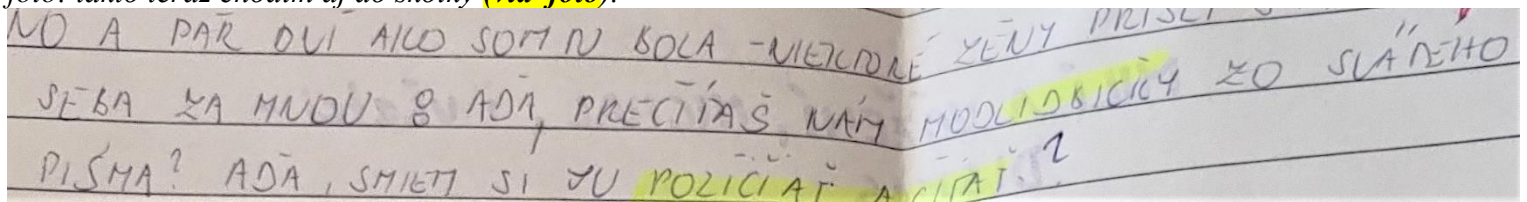 foto: takto teraz chodím aj do školy (viď foto).
NO A PAR DNÍ AKO SOM N BOLA - NIEKTORÉ ŽENY PRIŠLI
SEBA ZA MNOU 8 ADA, PREČÍTAŠ NÁM MODLIDBIČKY ZO SVÄTÉHO
PISMA? ADA, SMIEM SI JU POŽIČIAŤ A ČÍTAŤ?